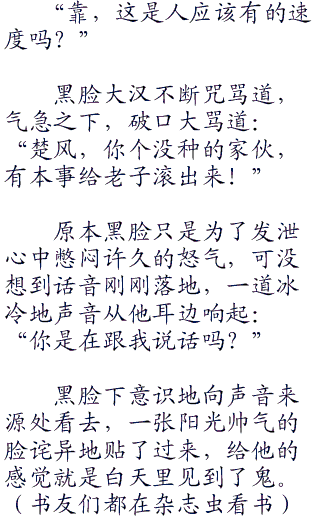 “靠，这是人应该有的速
度吗？”
黑脸大汉不断咒骂道，
气急之下，破口大骂道：
“楚风，你个没种的家伙，
有本事给老子滚出来！”
原本黑脸只是为了发泄
心中憋闷许久的怒气，可没
想到话音刚刚落地，一道冰
冷地声音从他耳边响起：
“你是在跟我说话吗？”
黑脸下意识地向声音来
源处看去，一张阳光帅气的
脸诧异地贴了过来，给他的
感觉就是白天里见到了鬼。
（书友们都在杂志虫看书）